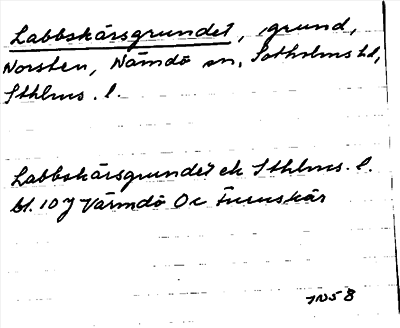 Labbskärsgrundet, grund,
Norsten, Nämdö sn, Sotholms hd,
Sthlms. l.
Labbskärsgrundet ek Sthlms. l.
bl. 10 J Värmdö Oc Furuskär
7N5 8